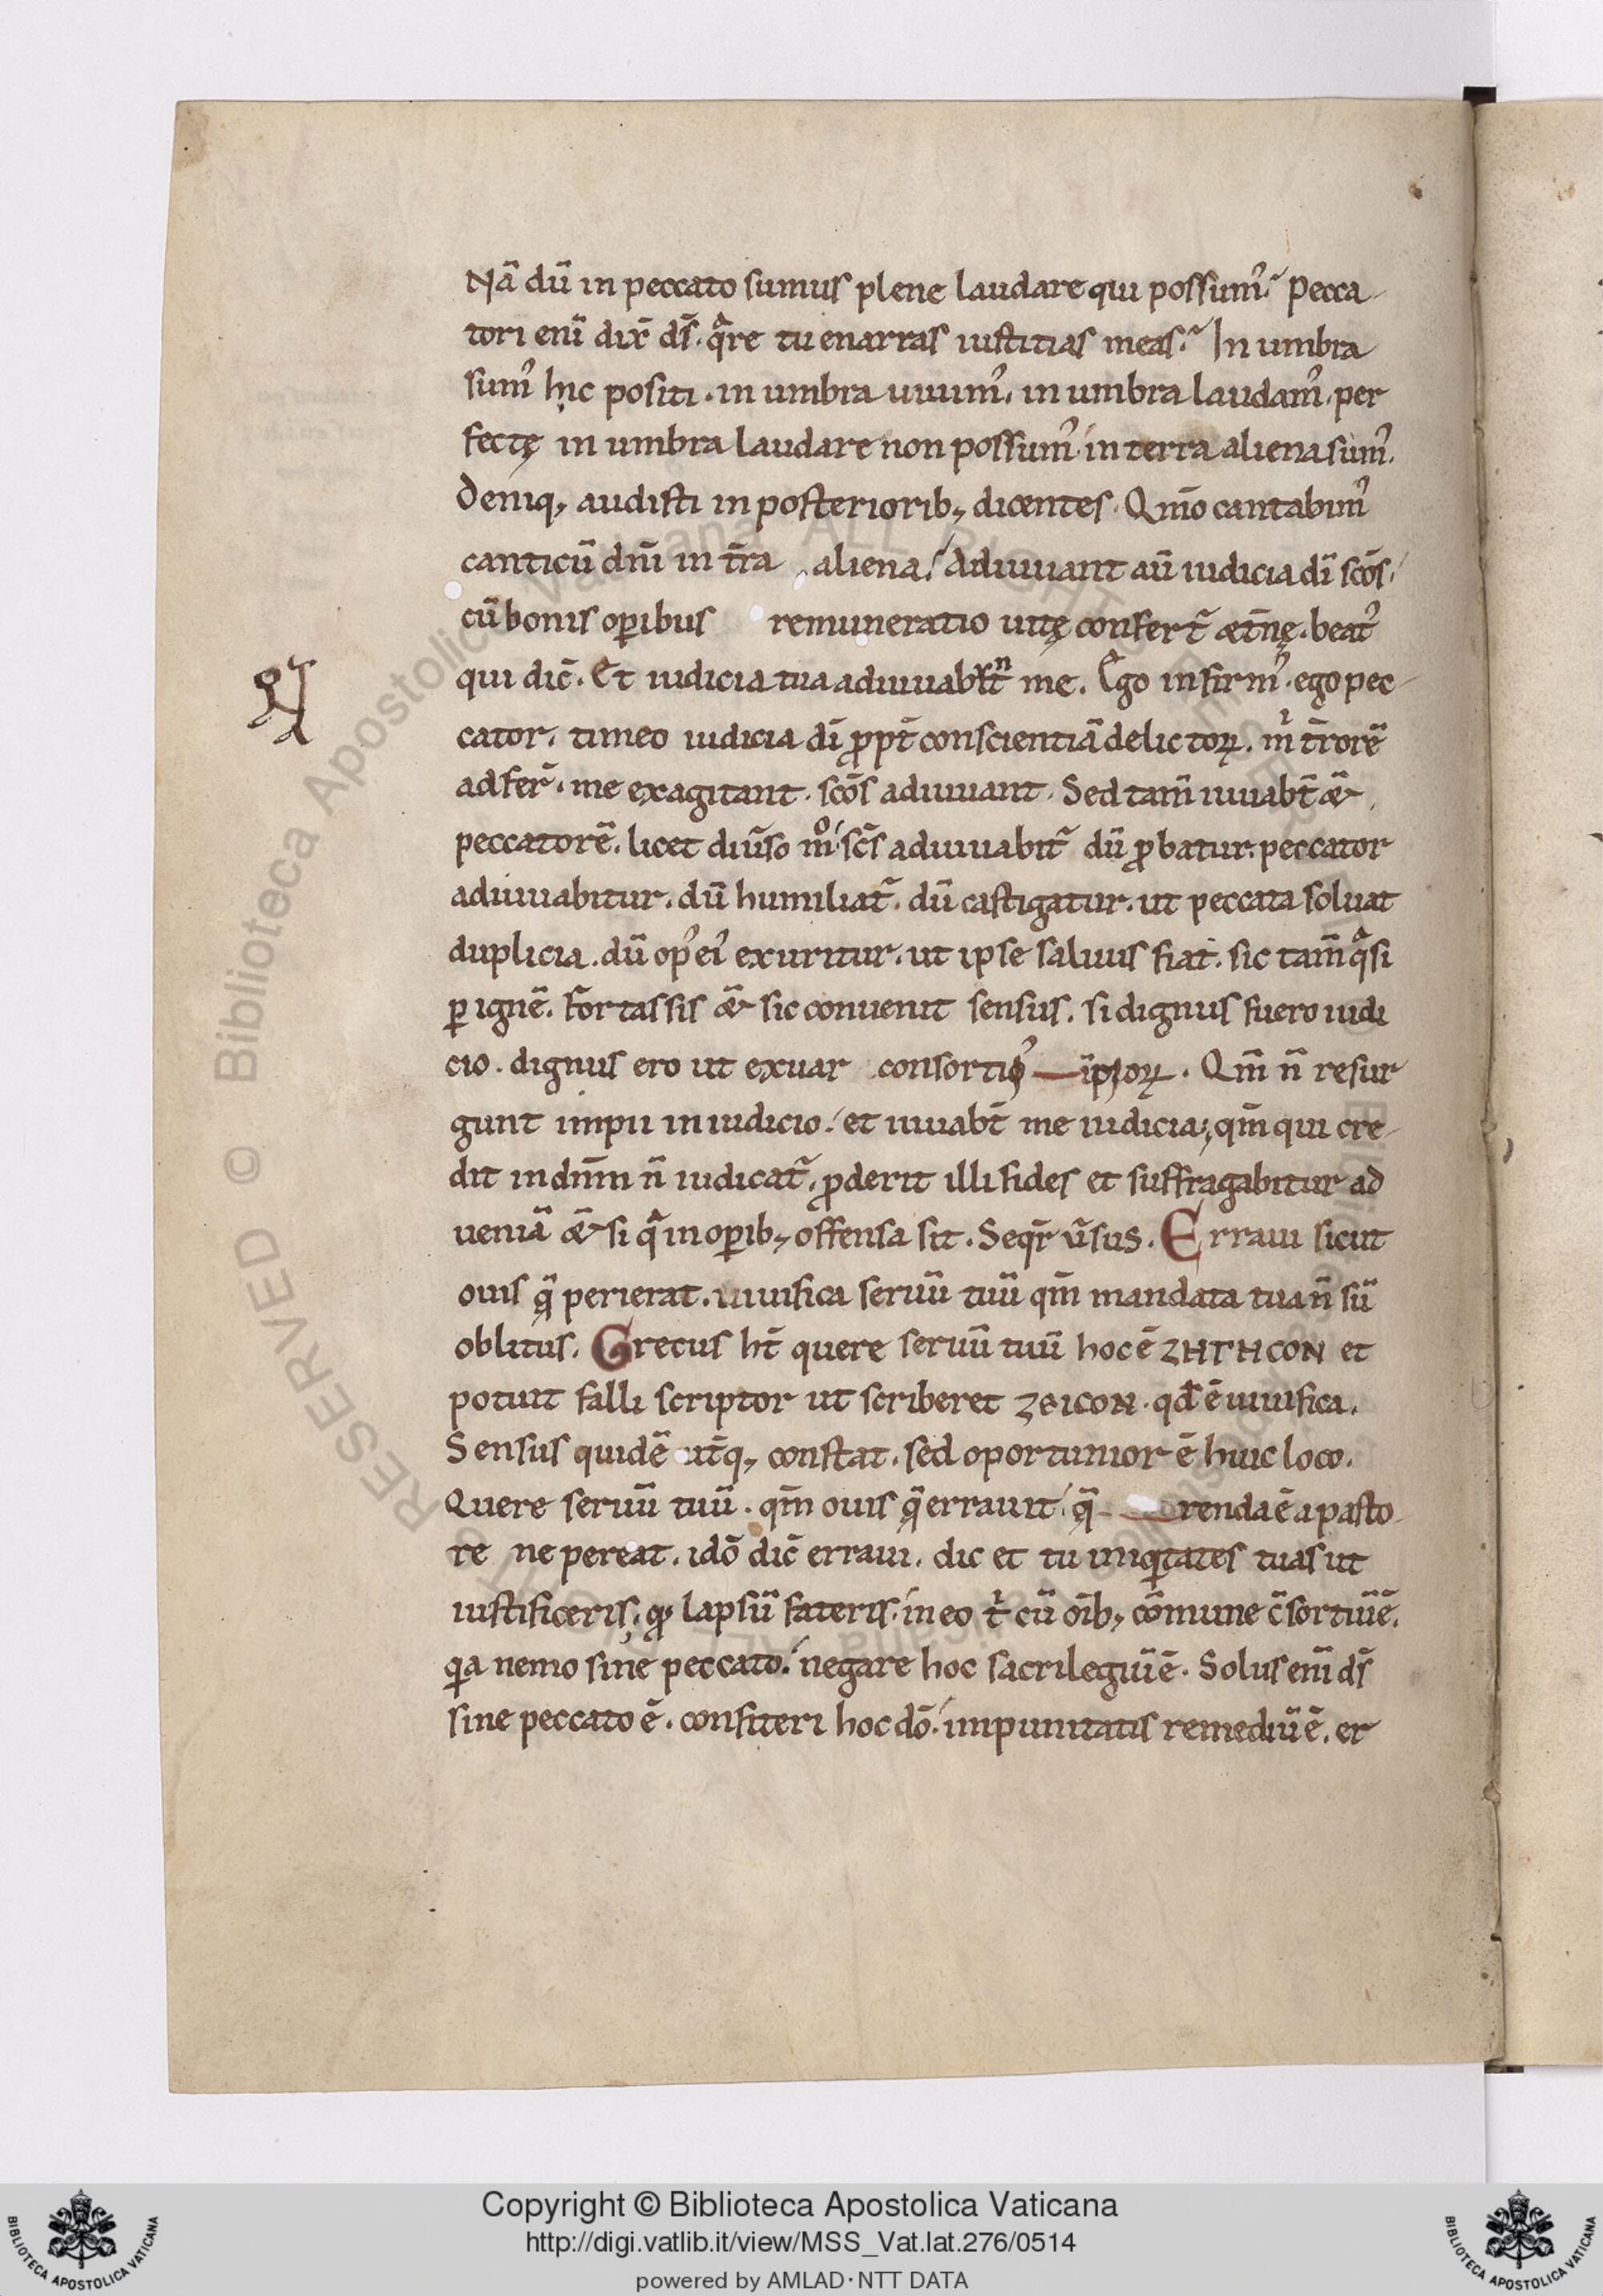 Nā dū in peccato sumus plene laudare qui possum᾿. Pecca-
tori eni̅ dix̅ ds̅. qͣre tu enarras iustitias meas. In umbra
sum᾿ hic positi. in umbra uiuim᾿. in umbra laudam᾿. per
fectę in umbra laudare non possum᾿. in terra aliena sum᾿.
Deniq; audisti in posteriorib; dicentes. Qm̅o cantabim᾿
canticū dn̅i in t̅ra aliena. Adiuuant au̅ iudicia di̅ sc̅os.
cū bonis oꝑibus remuneratio uitę confert̅ æt̅nę. beat᾿
qui dic̅. Et iudicia tua adiuuabūt me. Ego infirm᾿. ego pec-
cator. timeo iudicia di̅ ꝓpt̅ conscientiā delictoꝝ. mⁱ t̅rorē
adfer̅. me exagitant. sc̅os adiuuant. Sed tam̅ iuuabt̅ &̅
peccatorē. licet diu̅so mͦ. sc̅s adiuuabit̅ dū ꝓbatur. peccator
adiuuabitur. dū humiliat̅. dū castigatur. ut peccata soluat
duplicia. dū op᾿ ei᾿ exuritur. ut ipse saluus fiat. sic tam̅ qͣsi
ꝑ ignē. Fortassis &̅ sic conuenit sensus. si dignus fuero iudi
cio. dignus ero ut exuar consortio ipioꝝ. Qm̅ n̅ resur
gunt impii in iudicio. et iuuabt̅ me iudicia; qm̅ qui cre-
dit in dn̅m n̅ iudicat̅. ꝓderit illi fides et suffragabitur ad
ueniā &̅ si qͣ in oꝑib; offensa sit. Seqr̅ u̅sus. Erraui sicut
ouis q̅ perierat. uiuifica seruū tuū qm̅ mandata tua n̅ sū
oblitus. Grecus ht̅ quere seruū tuū hoc ē ZHTHCON et
potuit falli scriptor ut scriberet ZEICON. qd̅ ē uiuifica.
Sensus quidē ut̅q; constat. sed oportunior ē huic loco.
Quere seruū tuū. qm̅ ouis q̅ errauit. q̅ renda ē a pasto-
re ne pereat. idō dic̅ erraui. dic et tu iniqⁱtates tuas ut
iustificeris. qͦ lapsū fateris. in eo tⁱ cū oi̅b; cōmune c̅sortiū ē.
qͥa nemo sine peccato. negare hoc sacrilegiū ē. Solus eni̅ ds̅
sine peccato ē. confiteri hoc dō. impunitatis remediū ē. er
Copyright © Biblioteca Apostolica Vaticana
http://digi.vatlib.it/view/MSS_Vat.lat.276/0514
powered by AMLAD·NTT DATA